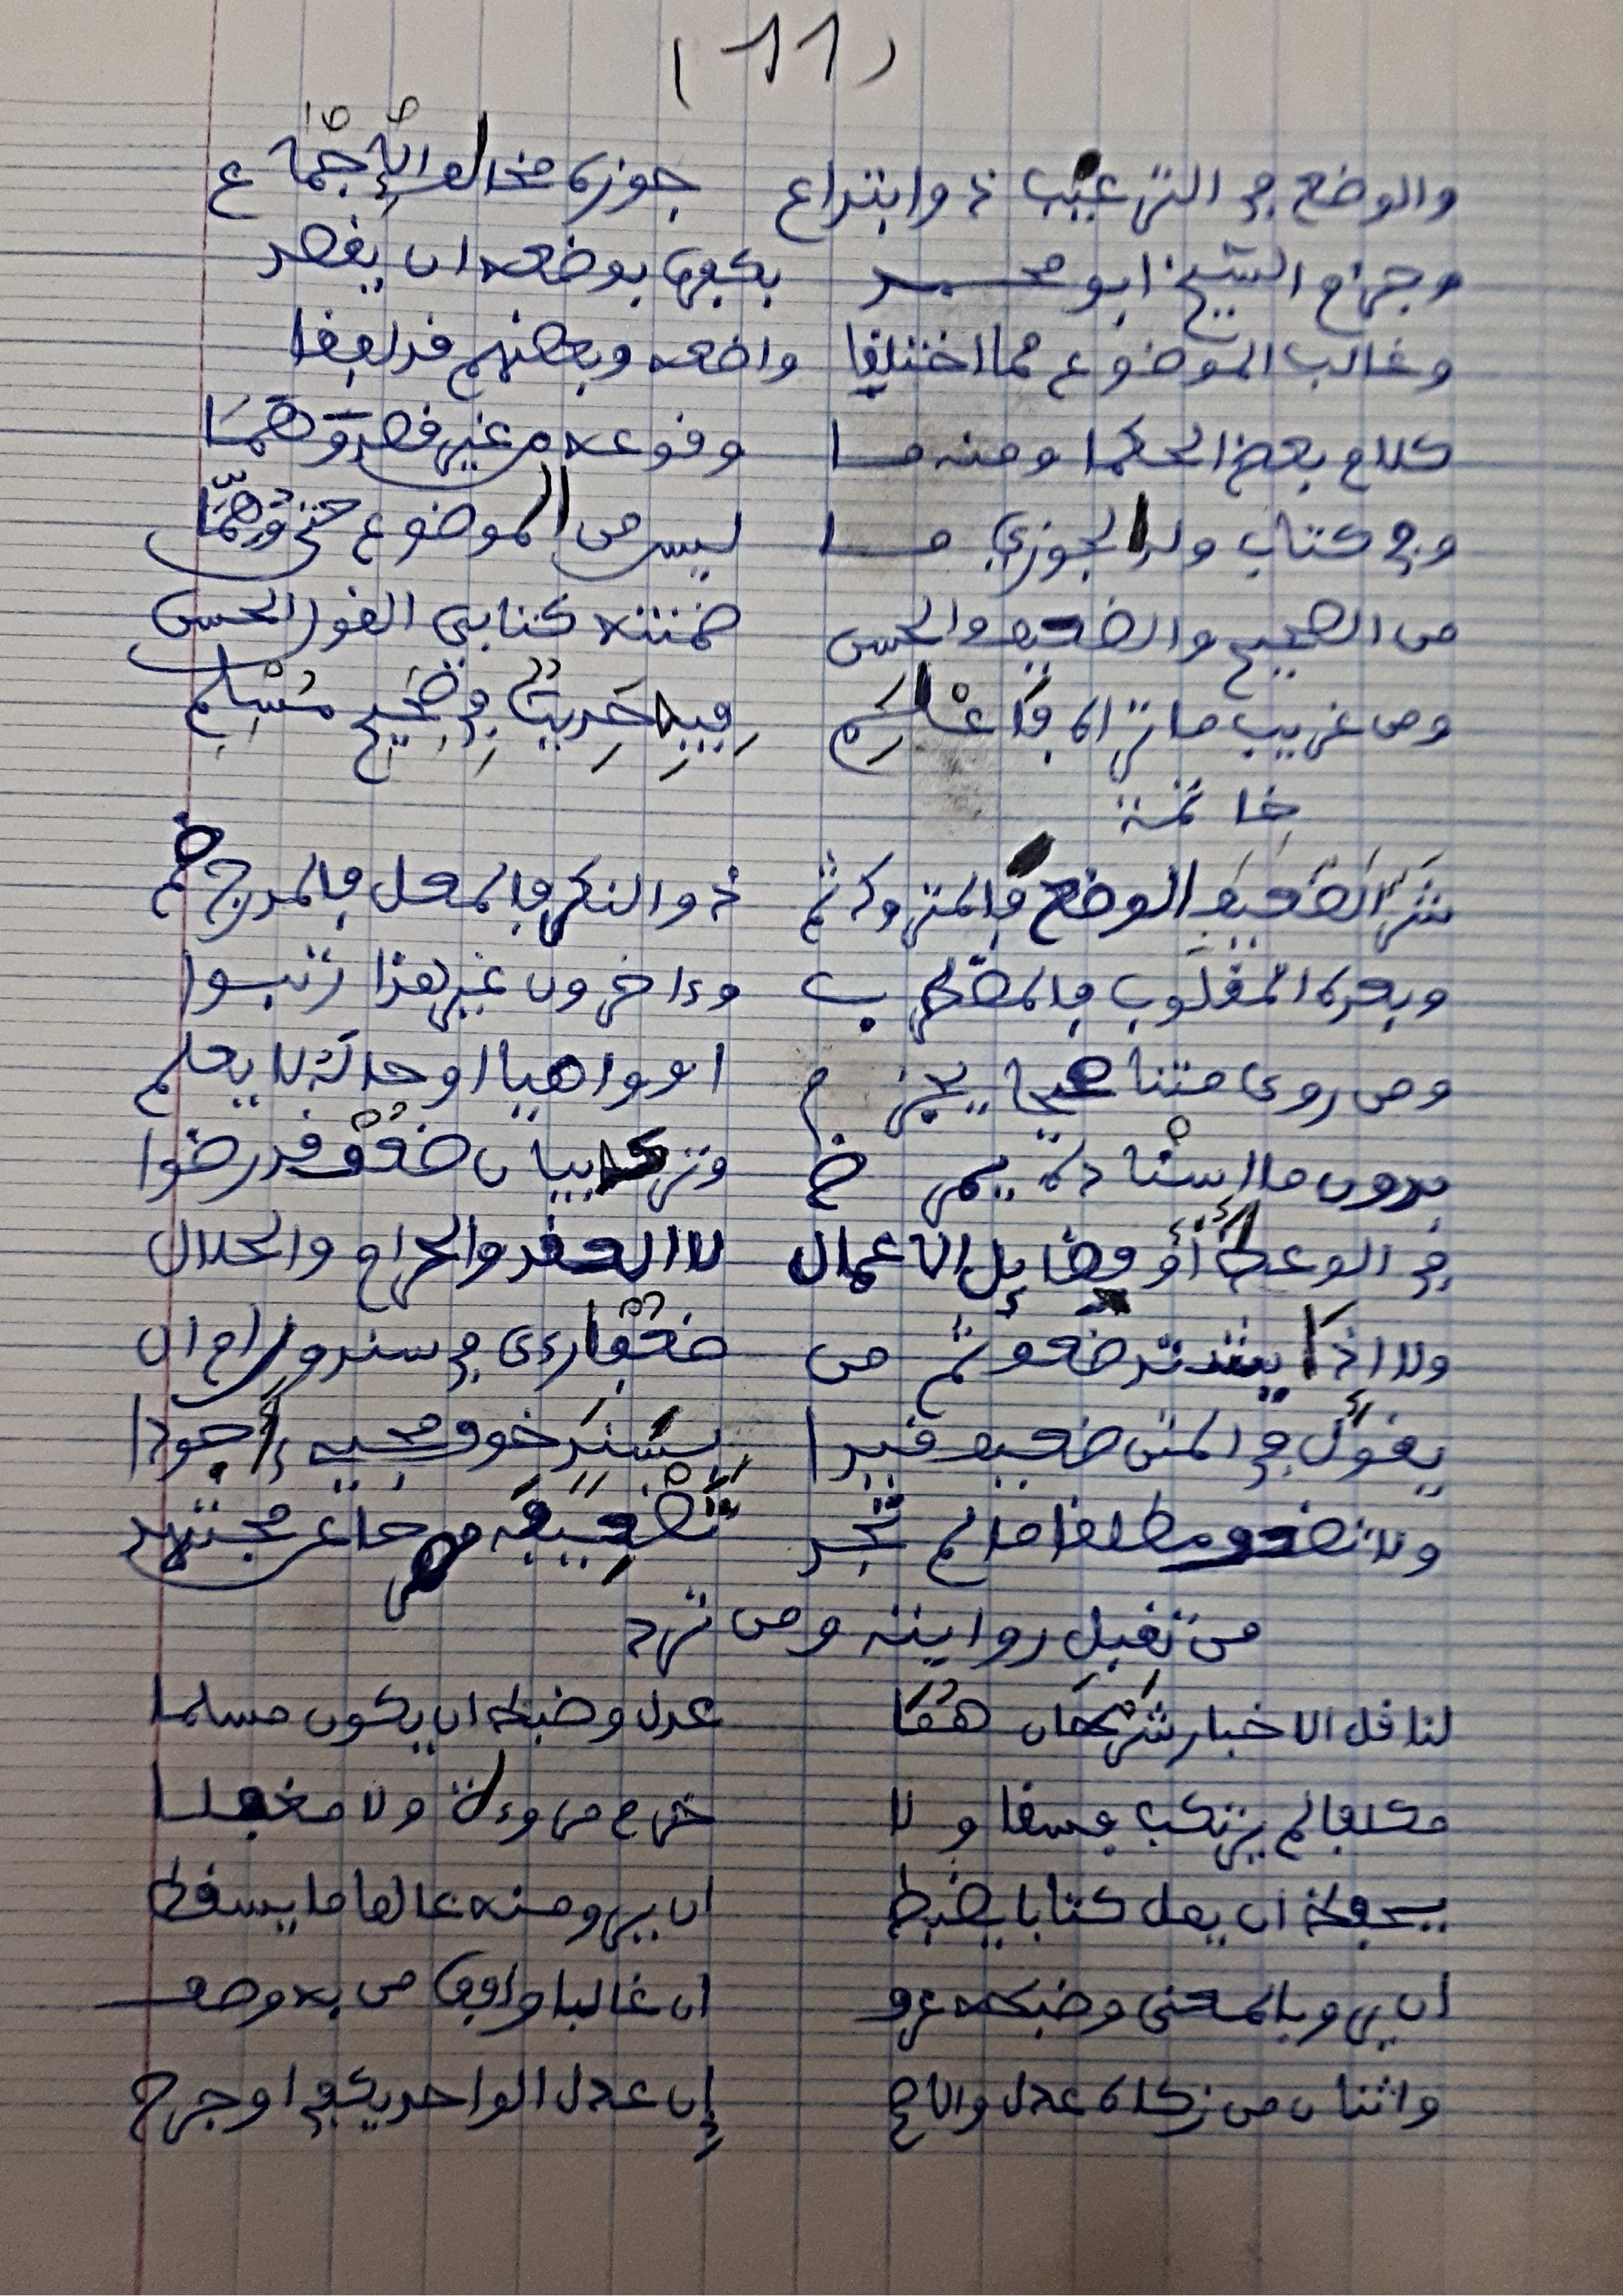 (11)
والوضع في الترغيب ذو ابتداع جوزه مخالف الإجماع
وجزم الشيخ أبو محمد بكفره بوضعه ان يقصد
وغالب الموضوع مما اختلقا واضعه وبعضهم قد لفقا
كلام بعض الحكما ومنه ما وقوعه من غير قصد وهما
وفي كتاب ولد الجوزي ما ليس من الموضوع حتى وهما
من الصحيح والضعيف والحسن ضمنته كتابي القول الحسن
ومن غريب ما تراه فاعلم فيه حديث في صحيح مسلم
خاتمة
شر الضعيف الوضع فالمتروك ثم ذو النكر فالمعل فالمدرج ضم
وبعده المقلوب فالمضطرب وءاخرون غير هذا رتبوا
ومن روى متنا صحيحا يجزم او واهيا او حاله لا يعلم
بدون ما اسناده يمرض وترك بيان ضعف قد رضوا
في الوعظ أو فضايل الاعمال لا العقد والحرام والحلال
ولا اذا يشتد ضعف ثم من ضعفا رءى في سند ورام ان
يقول في المتن ضعيف قيدا بسند خوف مجيء أجودا
ولا تضعف مطلقا ما لم تجد تضعيفه من امام مجتهد
من تقبل روايته ومن ترد
لناقل الاخبار شرطان هما عدل وضبط ان يكون مسلما
مكلفا لم يرتكب فسقا ولا خرم مروءة ولا مغفلا
يحفظ ان يمل كتابا يضبط ان يرو منه عالما ما يسقط
ان يرو بالمعنى وضبطه عرف ان غالبا وافق من به وصف
واثنان من زكاه عدل والاصح إن عدل الواحد يكفي او جرح